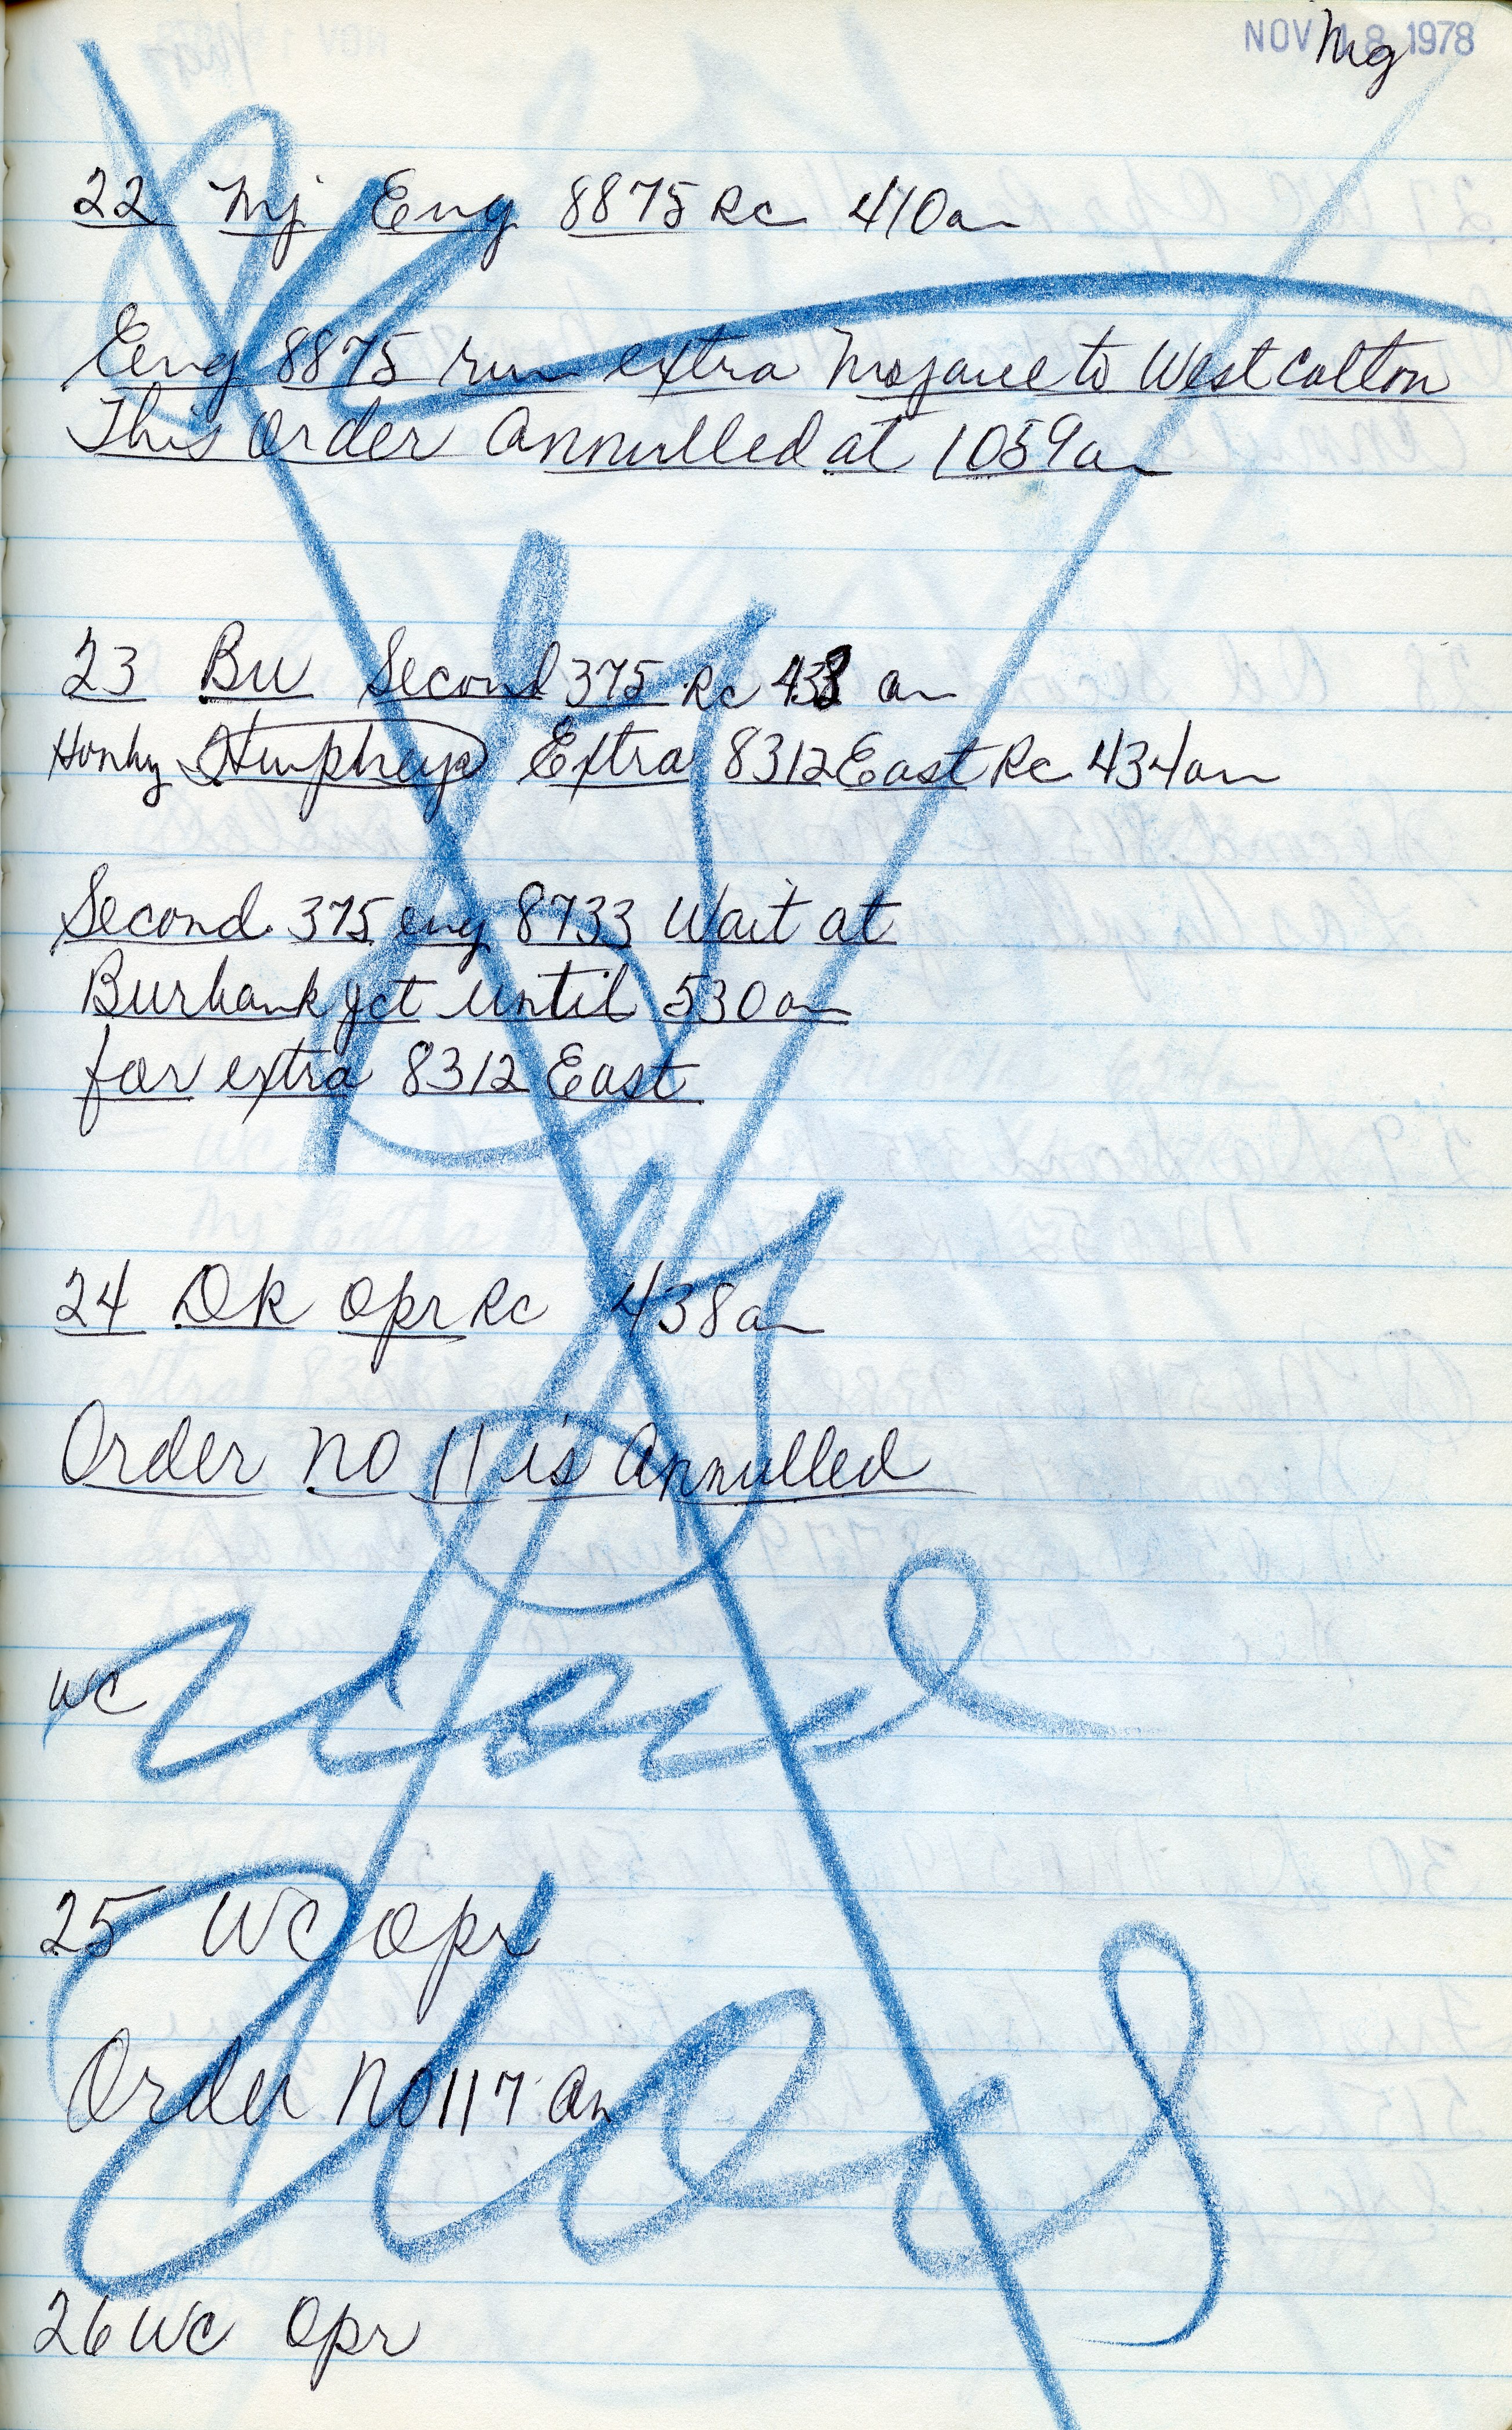 NOV 18 1978
mg
22 Mj Eng 8875 Rc 410am
Eng 8875 run extra Mojave to West Colton
This Order Annulled at 1059am
23 Bu Second 375 Rc 438 am
Humphreys Extra 8312 East Rc 434am
Second 375 eng 8733 Wait at
Burbank Jct until 530am
for extra 8312 East
24 Dk Opr Rc 438am
Order No 11 is Annulled
WC
Void
25 WC Opr
Order No 117 an
26 WC Opr